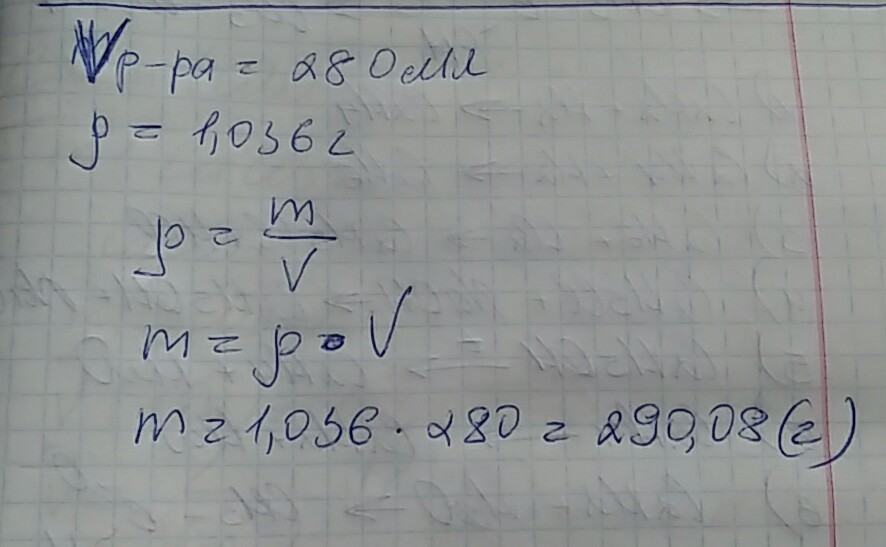 Vр-ра = 280мл
ρ = 1,036г
ρ = m/V
m = ρ · V
m = 1,036 · 280 = 290,08(г)